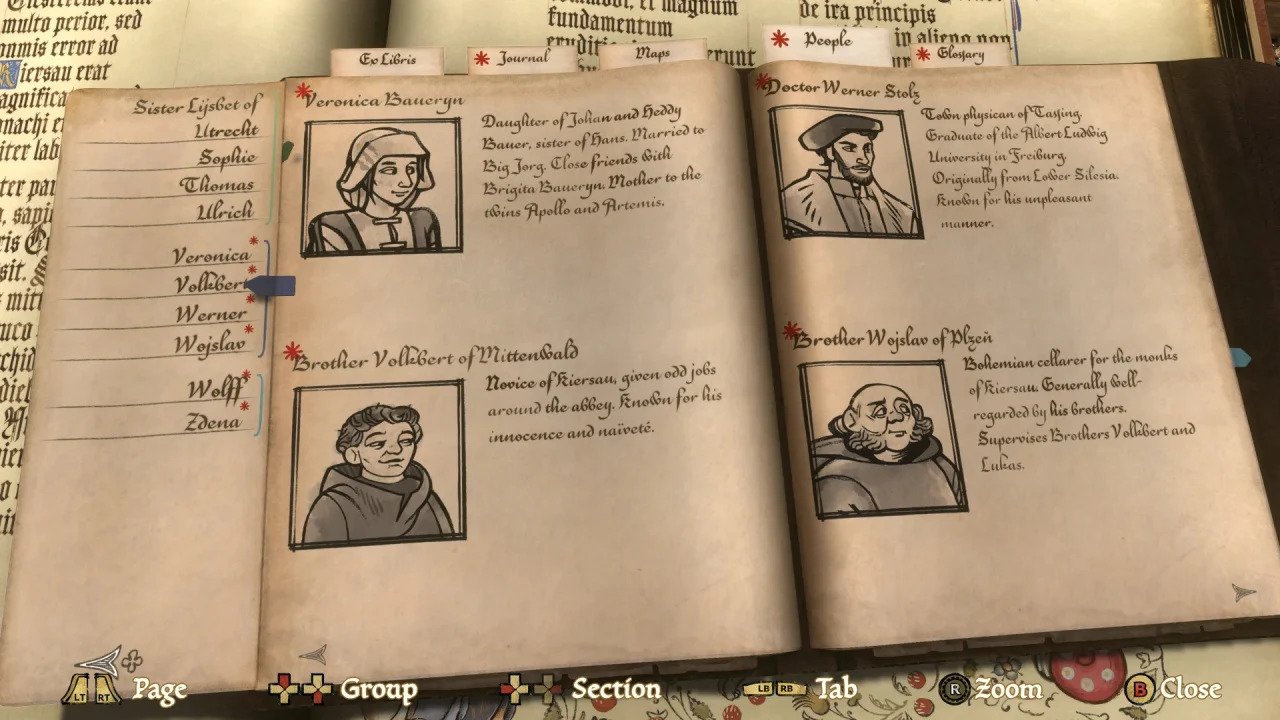 multo perior, sed
onmis error ad
iersau erat
et magnum
fundamentum
de ira principis
in alieno non
Ex Libris
Journal
Maps
People
Glossary
Sister Lijsbet of
Utrecht
Sophie
Thomas
Ulrich
Veronica
Volkbert
Werner
Wojslav
Wolff
Zdena
Veronica Baueryn
Daughter of Johan and Heddy
Bauer, sister of Hans. Married to
Big Jorg. Close friends with
Brigita Baueryn. Mother to the
twins Apollo and Artemis.
Brother Volkbert of Mittenwald
Novice of Kiersau, given odd jobs
around the abbey. Known for his
innocence and naïveté.
Doctor Werner Stolz
Town physican of Tassing
Graduate of the Albert Ludwig
University in Freiburg
Originally from Lower Silesia.
Known for his unpleasant
manner.
Brother Wojslav of Plzeň
Bohemian cellarer for the monks
of Kiersau. Generally well-
regarded by his brothers.
Supervises Brothers Volkbert and
Lukas.
LT RT Page
Group
Section
LB RB Tab
R Zoom
B Close